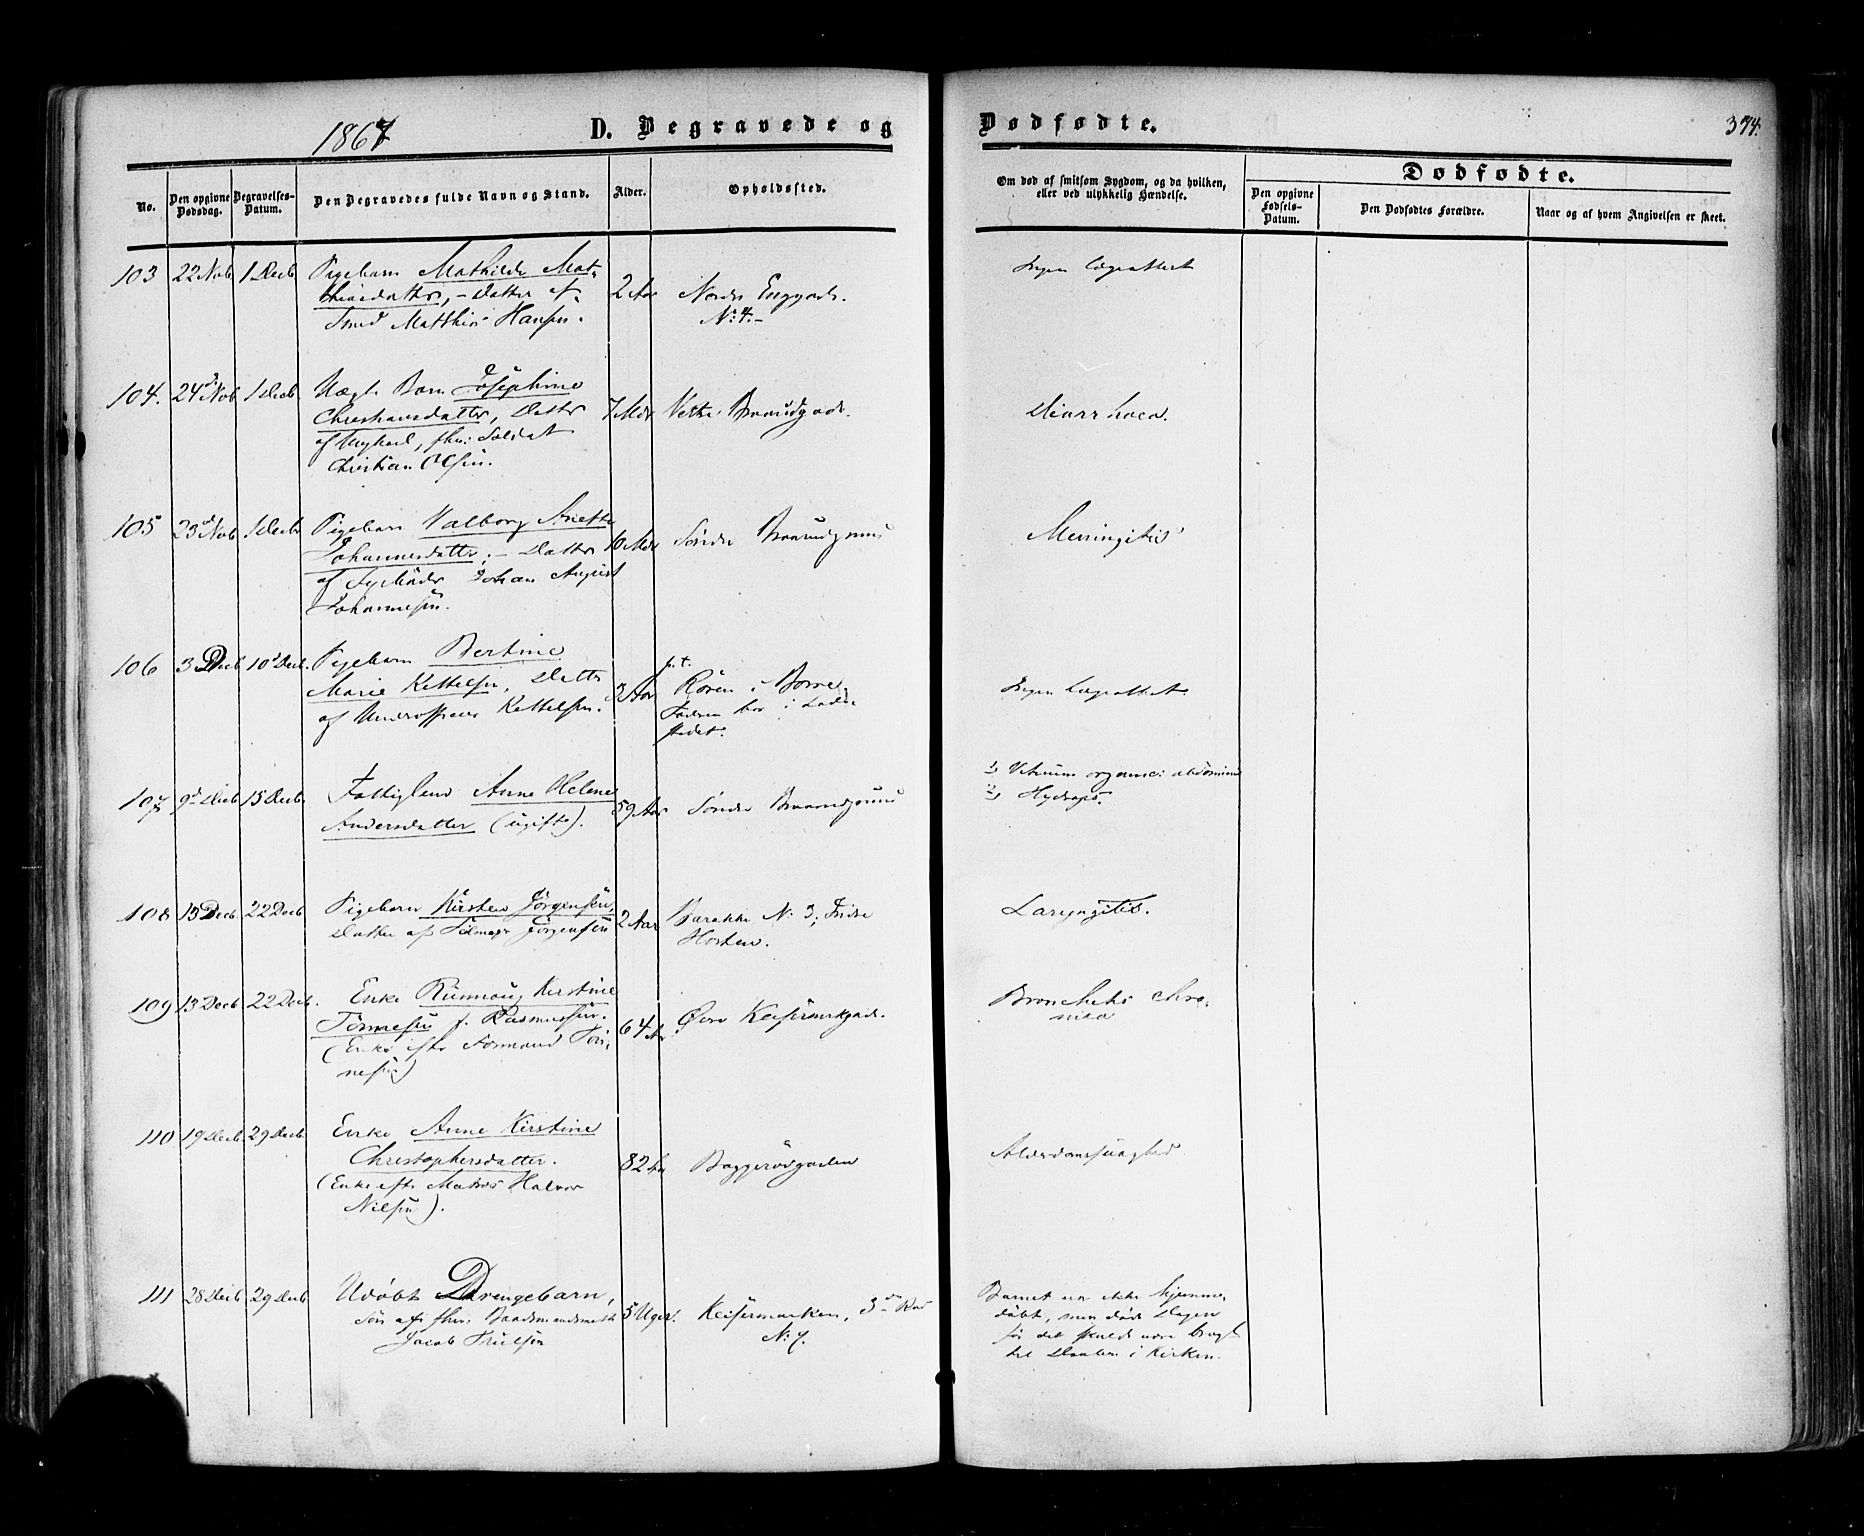 1867
D. Begravede og
Dødfødte.
374.
No.
Den opgivne Dødsdag.
Begravelses-Datum.
Den Begravedes fulde Navn og Stand.
Alder.
Opholdssted.
Om død af smitsom Sygdom, og da hvilken,
eller ved ulykkelig Hændelse.
Dødfødte.
Den opgivne Fødsels-Datum.
Den Dødfødtes Forældre.
Naar og af hvem Angivelsen er skeet.
103 22 Nob 1 Decb Pigebarn Mathilde Mat-
thiasdatter, – Datter af
Smed Matthias Hansen.
2 Aar
Nordre Enggade.
No: 4.–
Ingen Lægeattest
104. 24d Nob 1 Decb Uægt. Barn Josephine
Christiansdatter, Datter
af Ungkarl, fhv: Soldat
Christian Olsen.
7 Mdr Vestre Braaudgade.
Diarrhoea.
105 23d Nob 1 Decb Pigebarn Valborg Anette
Johannesdatter. – Datter
af Johan August
Johannesen.
10 Mdr Søndre
Meningitis
106 3 Decb 10d Decb. Pigebarn Bertine
Marie Kettelsen, Datter
af Underofficer Kettelsen.
3 Aar
p.t.
Røren i Borre.
Faderen bor i Lade-
stedet.
Ingen Lægeattest.
107 9d Decb 15 Decb. Fattiglem Anne Helene
Andersdatter (ugift).
59 Aar Søndre
1) Vitium organici abdominis
2) Hydrops.
108 13 Decb 22 Decb Pigebarn Kirsten Jørgensen,
Datter af Jørgensen
2 Aar Barakke No: 3, Indre
Horten.
Laryngitis.
109 13 Decb 22 Decb. Enke Kirstine
Tønnesen f. Rasmussen.
(Enke efter Formand Tøn-
nesen)
64 Aar Øvre Keisemarkgade.
Bronchitis chro-
nica
110 19 Decb. 29 Decb. Enke Anne Kirstine
Christophersdatter.
(Enke efter Matros Halvor
Nilsen).
82 Aar Baggerødgaden
Alderdomssvaghed
111 28 Decb 29 Decb Udøbt Drengebarn,
Søn af fhv: Baadsmandsmath
Jacob Truelsen
5 Uger. Keisermarken, 3die Rad
No: 7.
Barnet var ikke hjemme-
døbt, men døde Dagen
før det skulde være bragt
til Daaben i Kirken.